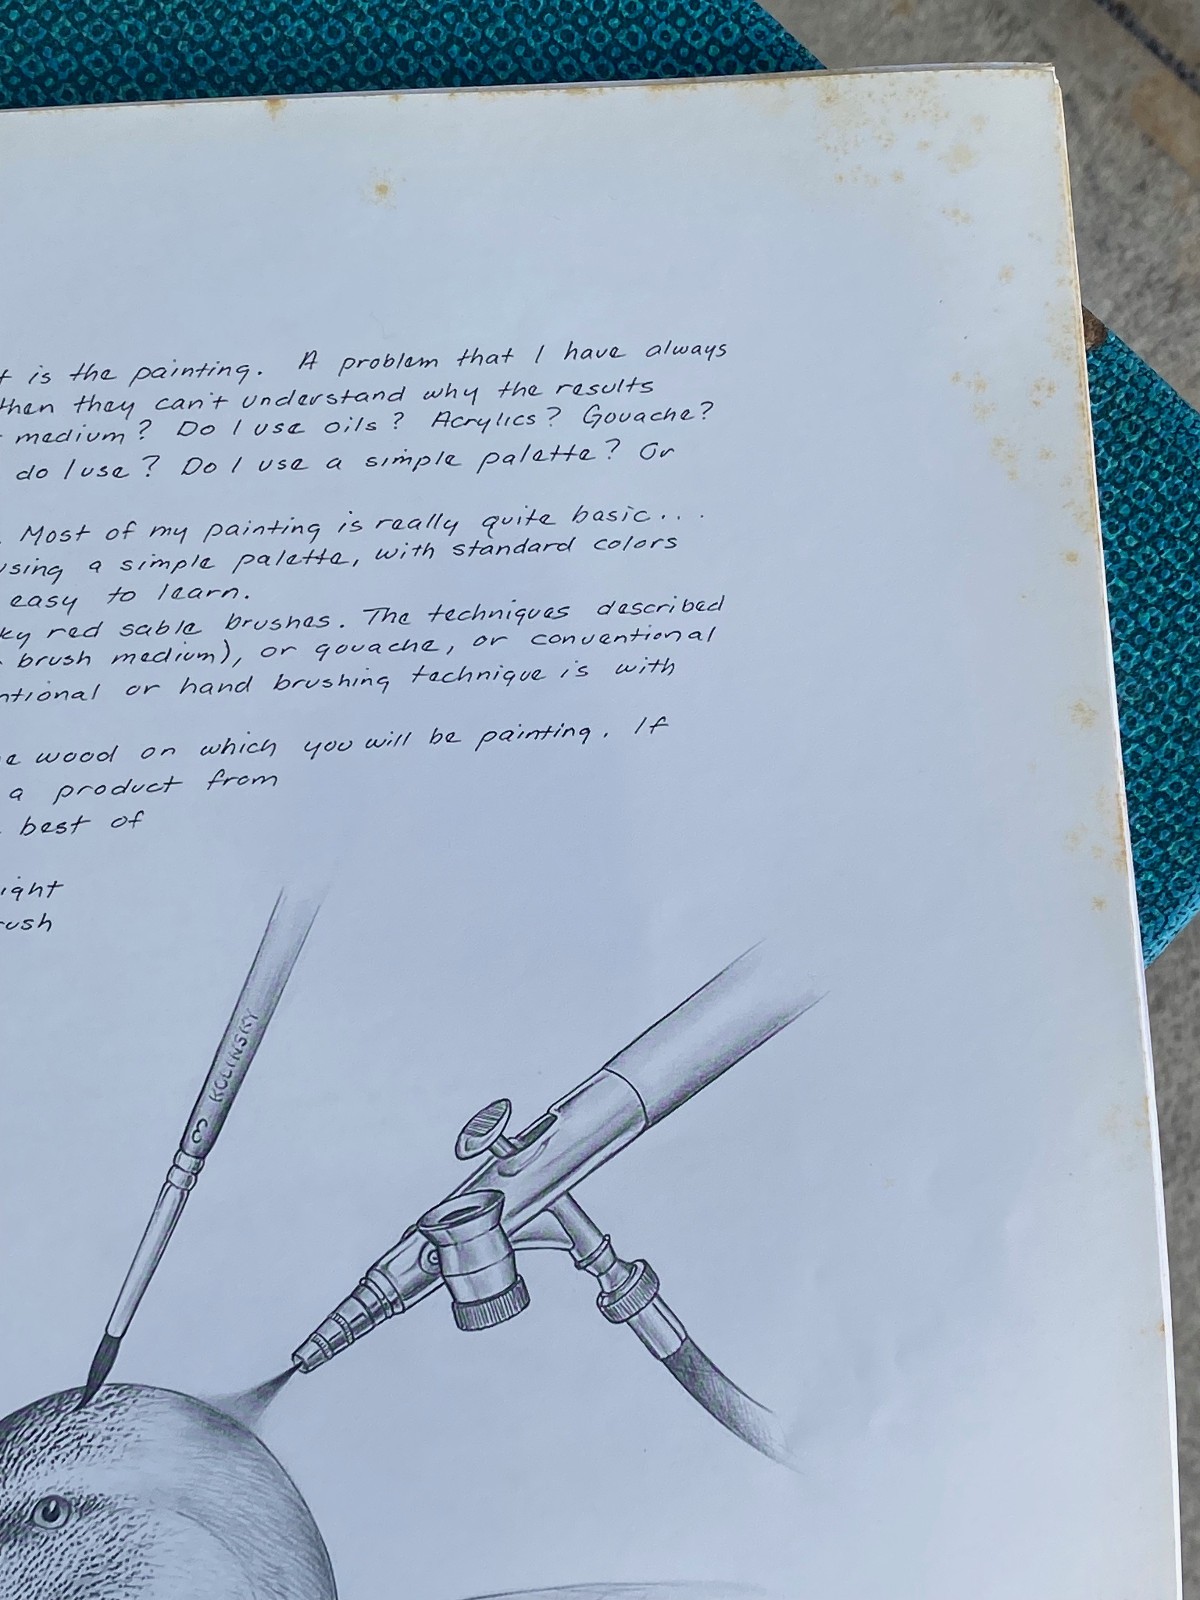 is the painting. A problem that I have always
then they can't understand why the results
medium? Do I use oils? Acrylics? Gouache?
do I use? Do I use a simple palette? Or
Most of my painting is really quite basic...
using a simple palette, with standard colors
easy to learn.
ky red sable brushes. The techniques described
brush medium), or gouache, or conventional
ntional or hand brushing technique is with
e wood on which you will be painting. If
a product from
best of
ight
rush
3 KOLINSKY